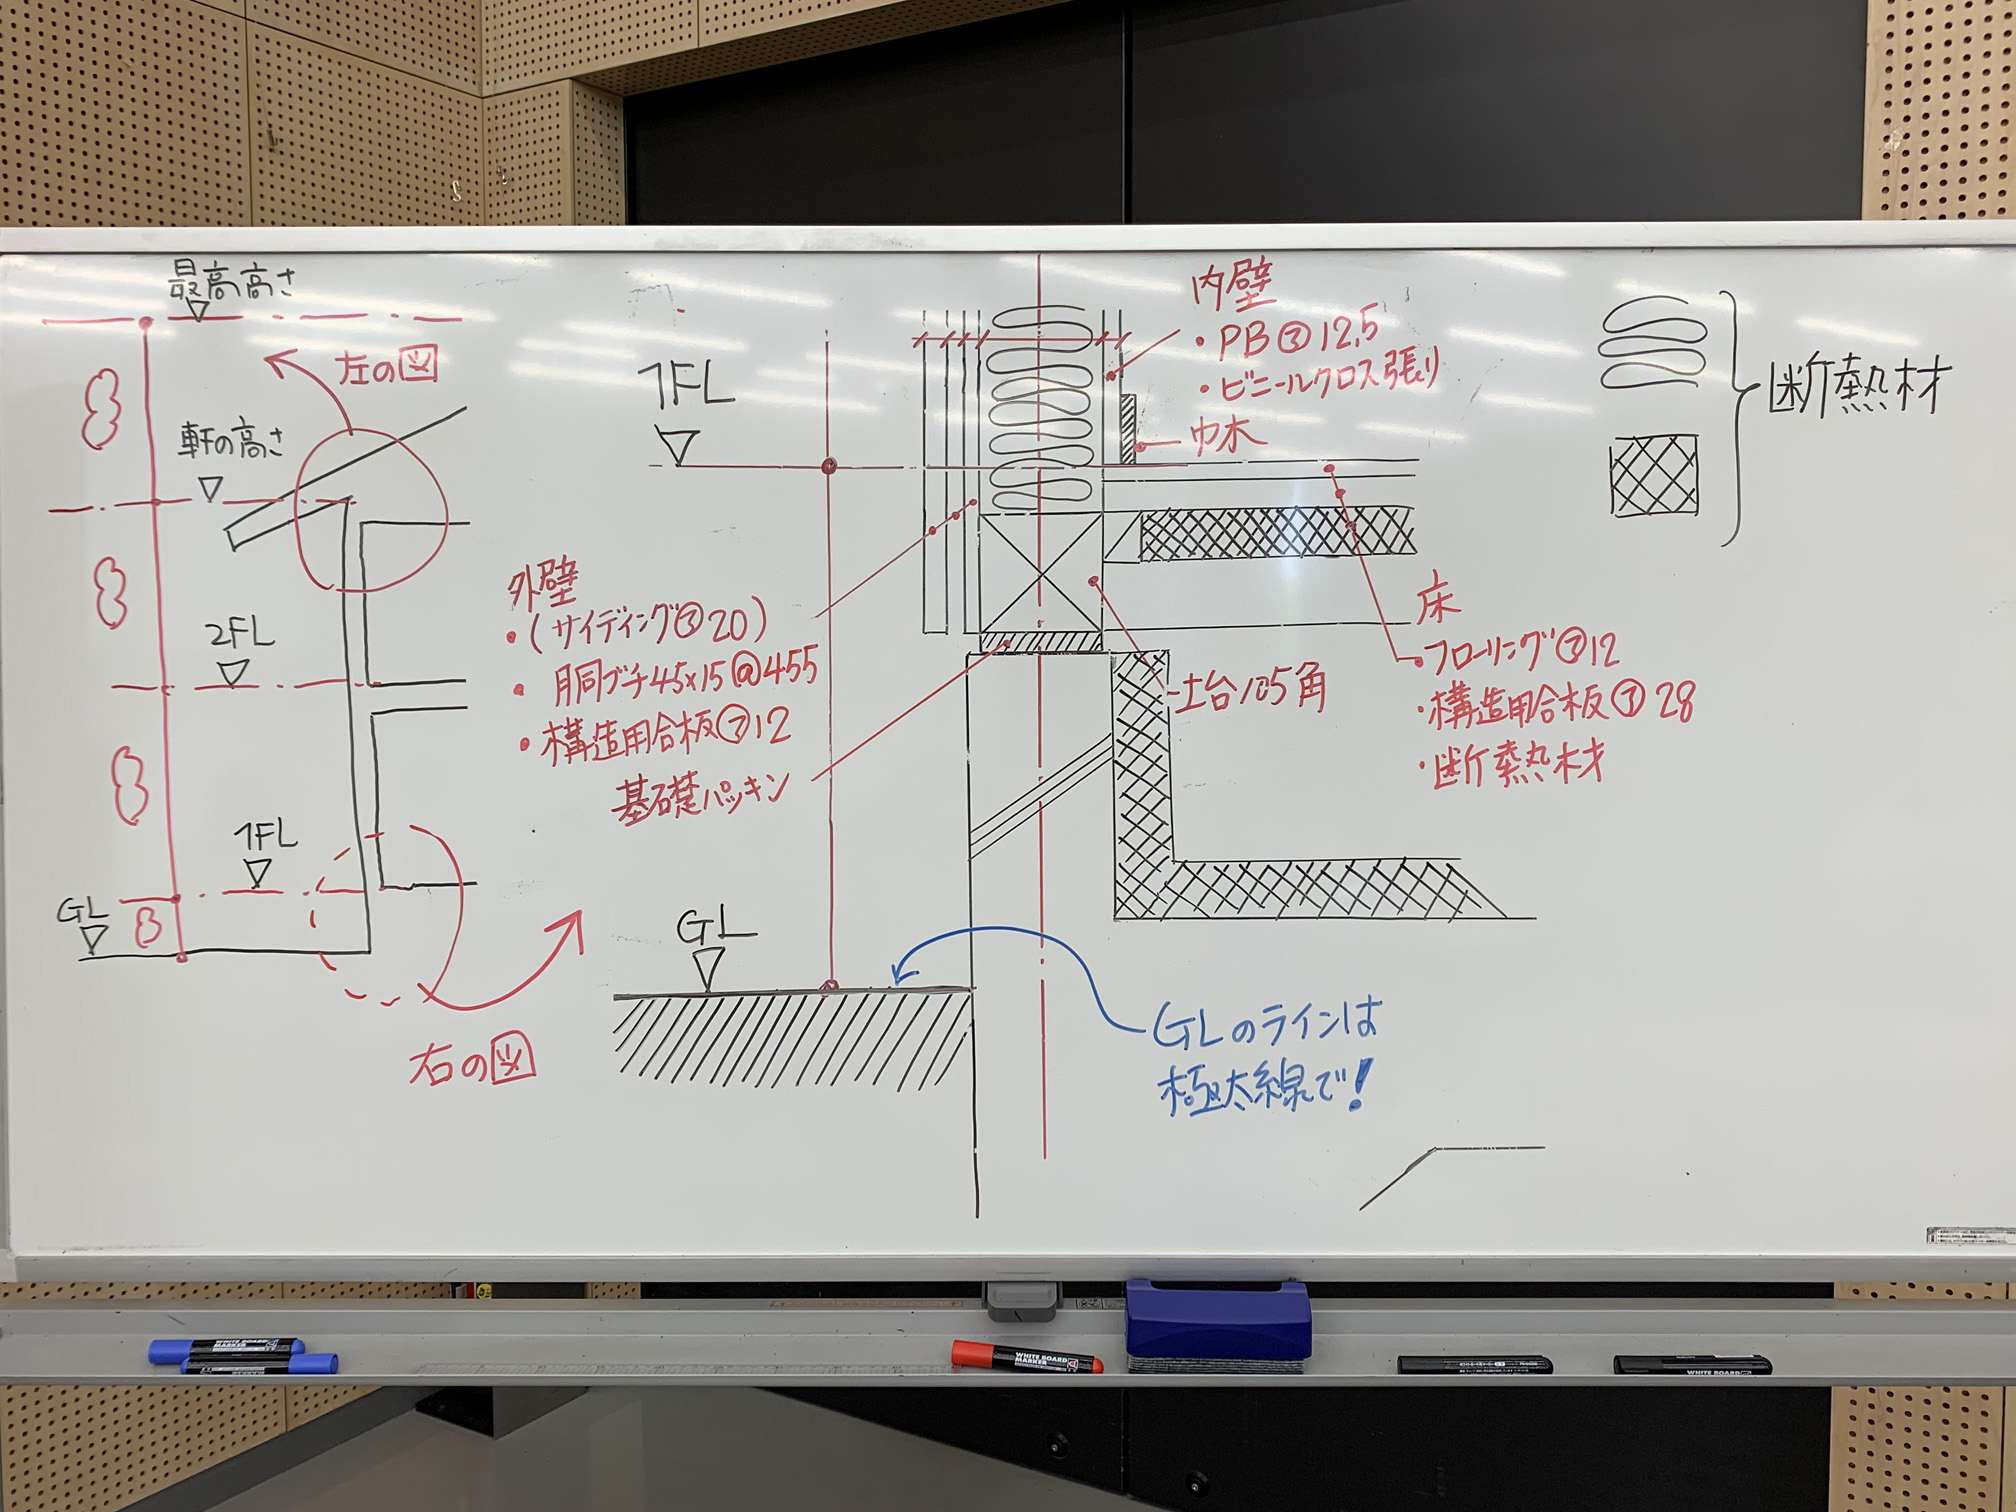 最高高さ
左の図
軒の高さ
2FL
1FL
GL
右の図
1FL
外壁
・(サイディング㋐20)
・胴ブチ45×15@455
・構造用合板㋐12
基礎パッキン
GL
内壁
・PB㋐12,5
・ビニールクロス張り
巾木
土台105角
床
・フローリング㋐12
・構造用合板㋐28
・断熱材
GLのラインは
極太線で!
断熱材
WHITE BOARD
MARKER
WHITE BOARD
MARKER
WHITE BOARD